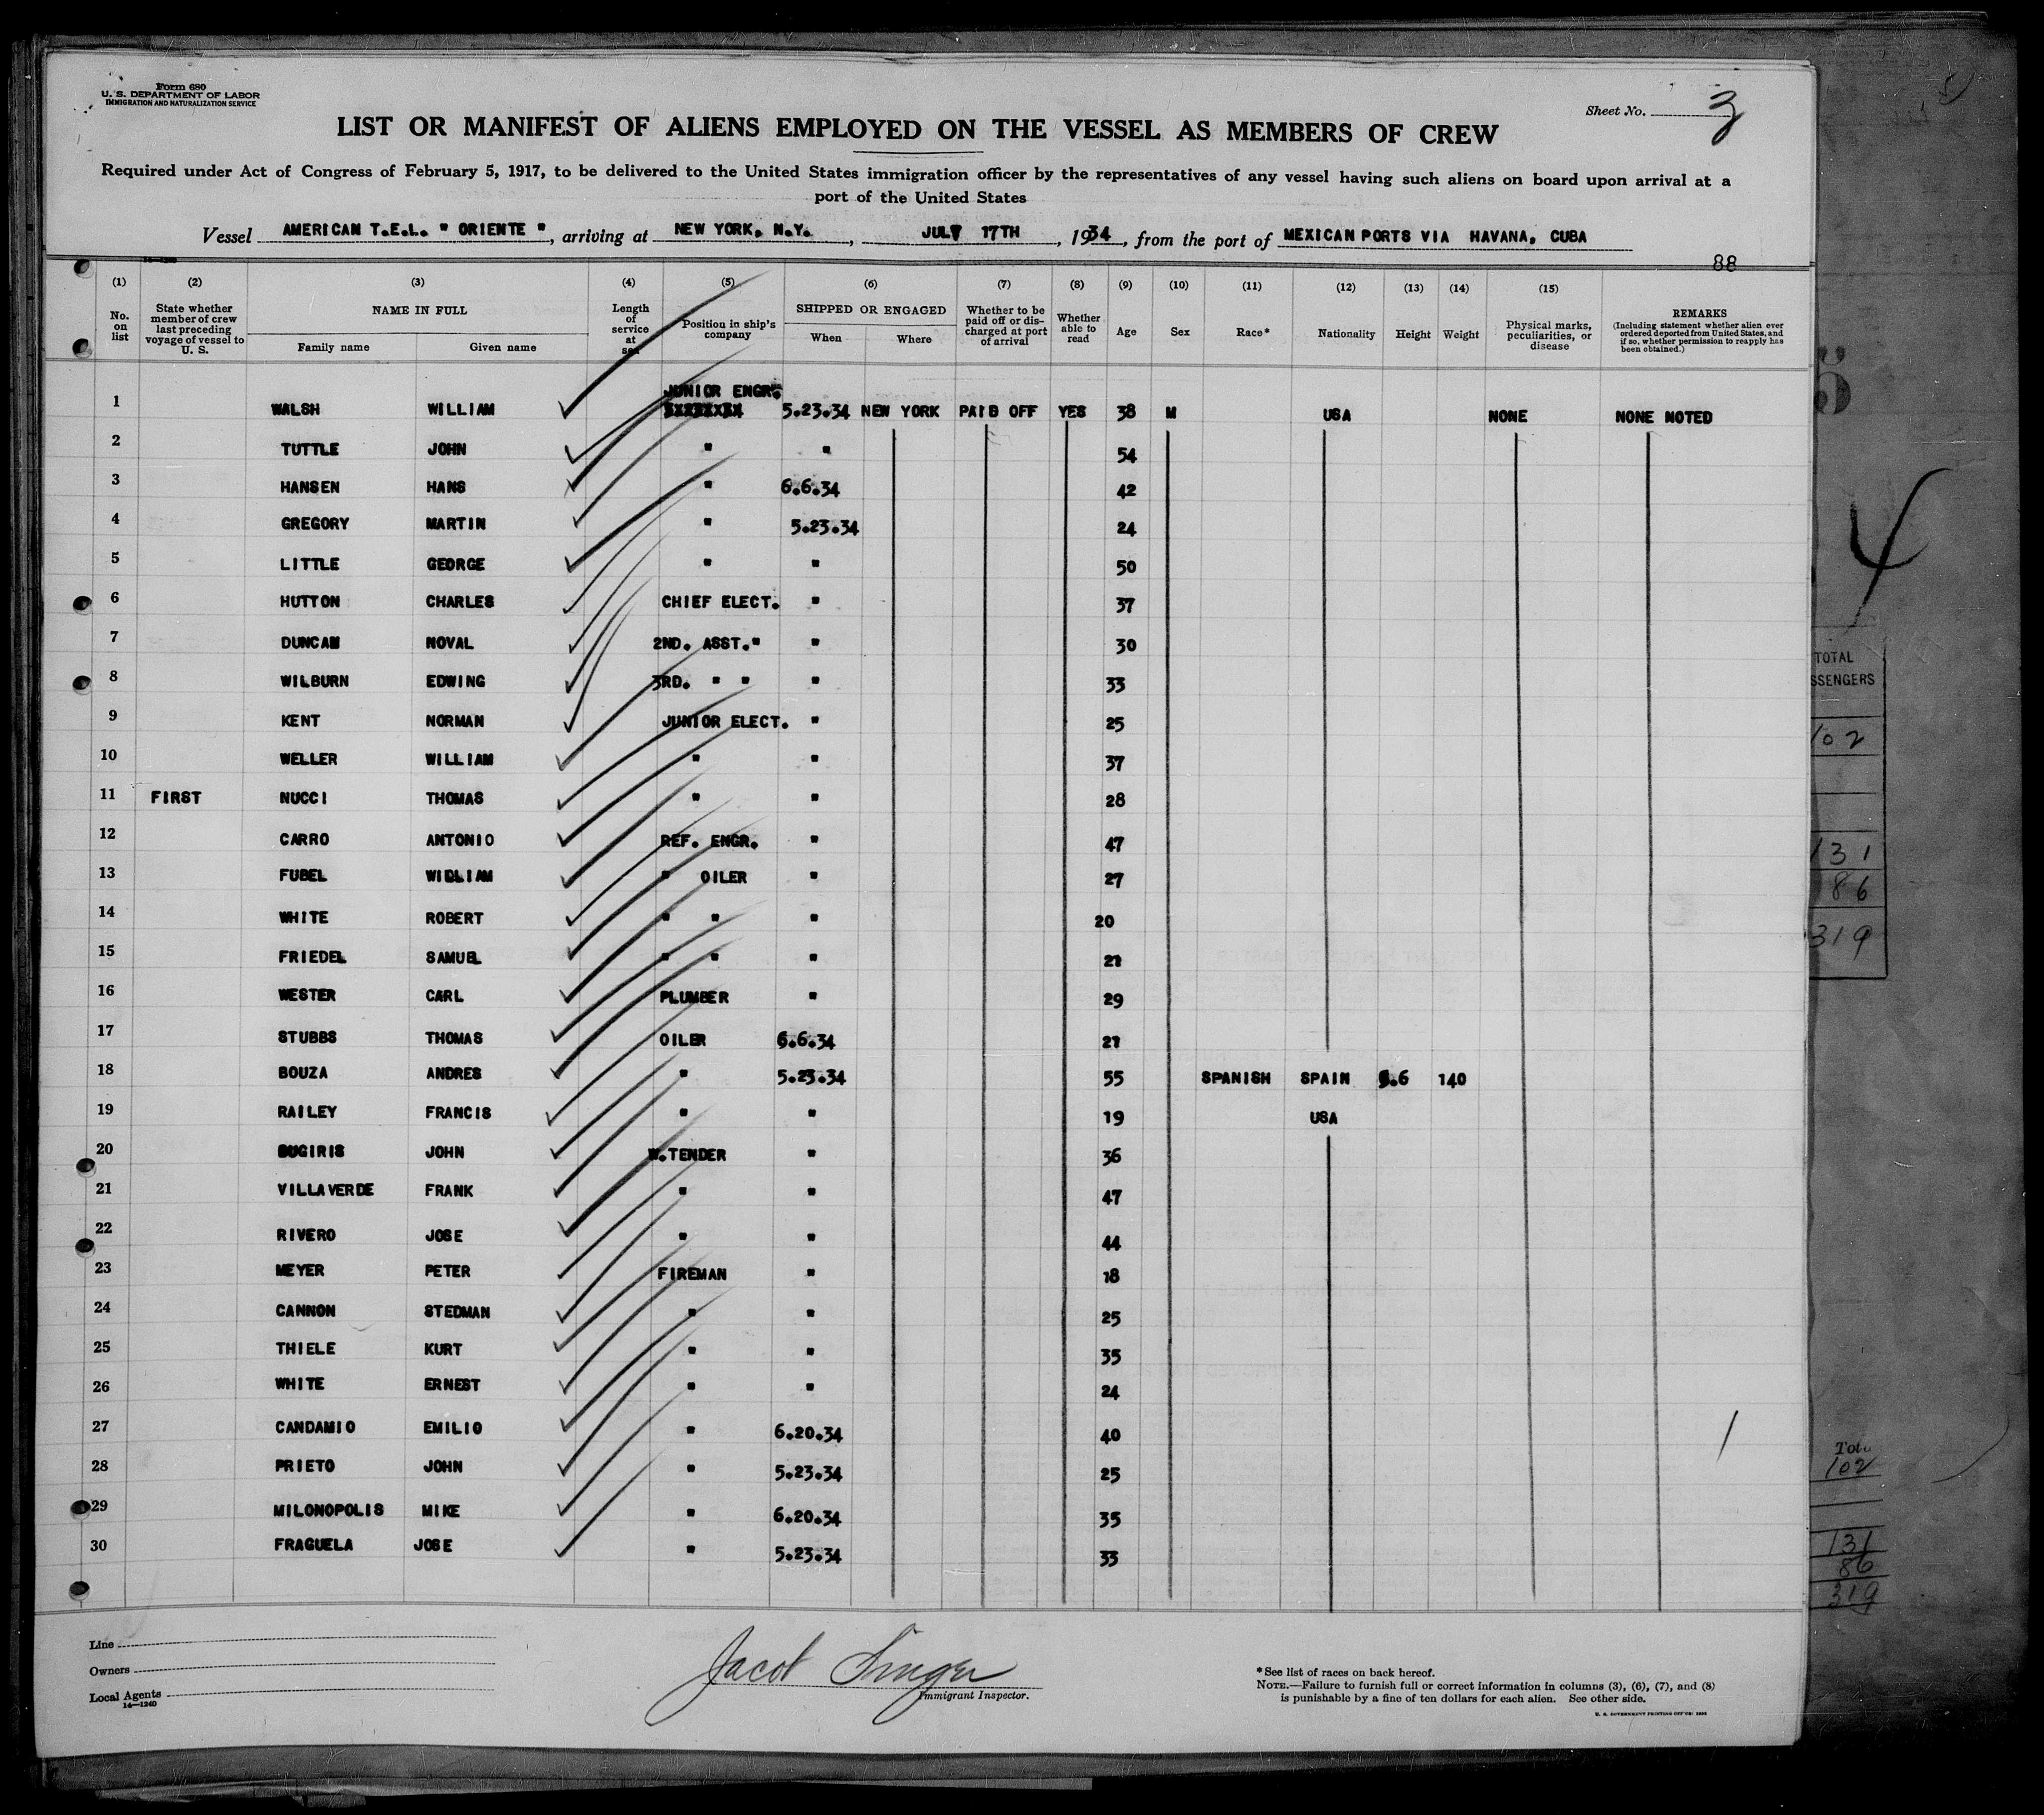 Form 680
U. S. DEPARTMENT OF LABOR
IMMIGRATION AND NATURALIZATION SERVICE
Sheet No. 3
LIST OR MANIFEST OF ALIENS EMPLOYED ON THE VESSEL AS MEMBERS OF CREW
Required under Act of Congress of February 5, 1917, to be delivered to the United States immigration officer by the representatives of any vessel having such aliens on board upon arrival at a
port of the United States
Vessel AMERICAN T.E.L. " ORIENTE ", arriving at NEW YORK, N.Y., JULY 17TH, 1934, from the port of MEXICAN PORTS VIA HAVANA, CUBA
88
(1) (2) (3) (4) (5) (6) (7) (8) (9) (10) (11) (12) (13) (14) (15)
No. on list State whether member of crew last preceding voyage of vessel to U. S. NAME IN FULL Family name Given name Length of service at sea Position in ship's company SHIPPED OR ENGAGED When Where Whether to be paid off or discharged at port of arrival Whether able to read Age Sex Race* Nationality Height Weight Physical marks, peculiarities, or disease REMARKS (Including statement whether alien ever ordered deported from United States, and if so, whether permission to reapply has been obtained.)
JUNIOR ENGR.
1 WALSH WILLIAM 5.23.34 NEW YORK PAID OFF YES 38 M USA NONE NONE NOTED
2 TUTTLE JOHN " " 54
3 HANSEN HANS " 6.6.34 42
4 GREGORY MARTIN " 5.23.34 24
5 LITTLE GEORGE " " 50
6 HUTTON CHARLES CHIEF ELECT. " 37
7 DUNCAN NOVAL 2ND. ASST. " " 30
8 WILBURN EDWING 3RD. " " " 33
9 KENT NORMAN JUNIOR ELECT. " 25
10 WELLER WILLIAM " " 37
11 FIRST NUCCI THOMAS " " 28
12 CARRO ANTONIO REF. ENGR. " 47
13 FUBEL WIDLIAM " OILER " 27
14 WHITE ROBERT " " " 20
15 FRIEDEL SAMUEL " " " 21
16 WESTER CARL PLUMBER " 29
17 STUBBS THOMAS OILER 6.6.34 21
18 BOUZA ANDRES " 5.23.34 55 SPANISH SPAIN 5.6 140
19 RAILEY FRANCIS " " 19 USA
20 BUGIRIS JOHN W.TENDER " 36
21 VILLAVERDE FRANK " " 47
22 RIVERO JOSE " " 44
23 MEYER PETER FIREMAN " 18
24 CANNON STEDMAN " " 25
25 THIELE KURT " " 35
26 WHITE ERNEST " " 24
27 CANDAMIO EMILIO " 6.20.34 40
28 PRIETO JOHN " 5.23.34 25
29 MILONOPOLIS MIKE " 6.20.34 35
30 FRAGUELA JOSE " 5.23.34 33
Line
Owners
Local Agents
14—1240
Jacob Singer
Immigrant Inspector.
*See list of races on back hereof.
NOTE.—Failure to furnish full or correct information in columns (3), (6), (7), and (8)
is punishable by a fine of ten dollars for each alien. See other side.
U. S. GOVERNMENT PRINTING OFFICE: 1933
5
4
TOTAL
SSENGERS
102
131
86
319
102
131
86
319